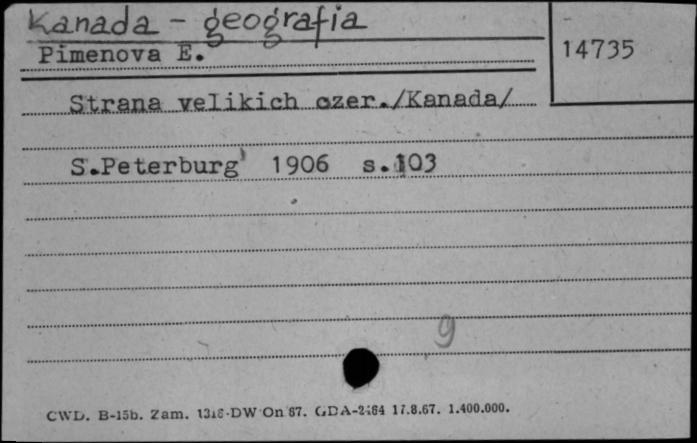 Kanada - geografia
Pimenova E.
14735
Strana velikich ozer./Kanada/
S.Peterburg 1906 s.103
9
CWD. B-15b. Zam. DW On 67. GDA-2464 17.8.67. 1.400.000.